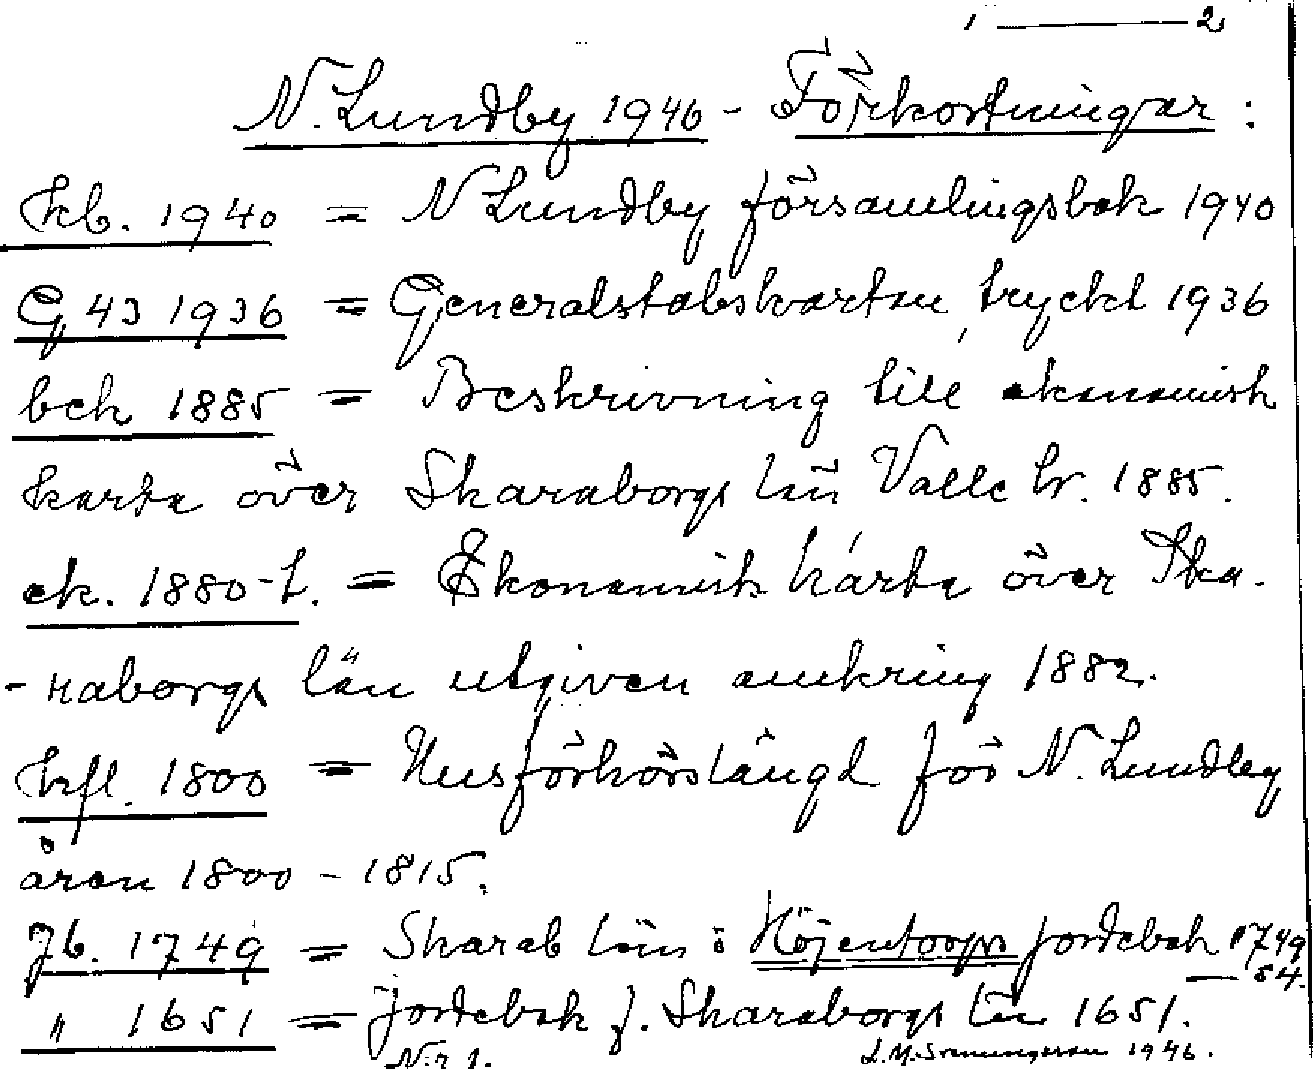 1 — 2
N. Lundby 1946 - Förkortningar:
kb. 1940 = N Lundby församlingsbok 1940
G 43 1936 = Generalstabskartan, tryckt 1936
bek 1885 = Beskrivning till ekonomisk
karta över Skaraborgs län Valle hr. 1885.
ek. 1880-t. = Ekonomisk karta över Ska-
-raborgs län utgiven omkring 1882.
hfl. 1800 = Husförhörslängd för N. Lundby
åren 1800 - 1815.
Jb. 1749 = Skarab län: Höjentorps jordebok 1749
— 54.
" 1651 = Jordebok f. Skaraborgs län 1651.
N:r 1. 1946.